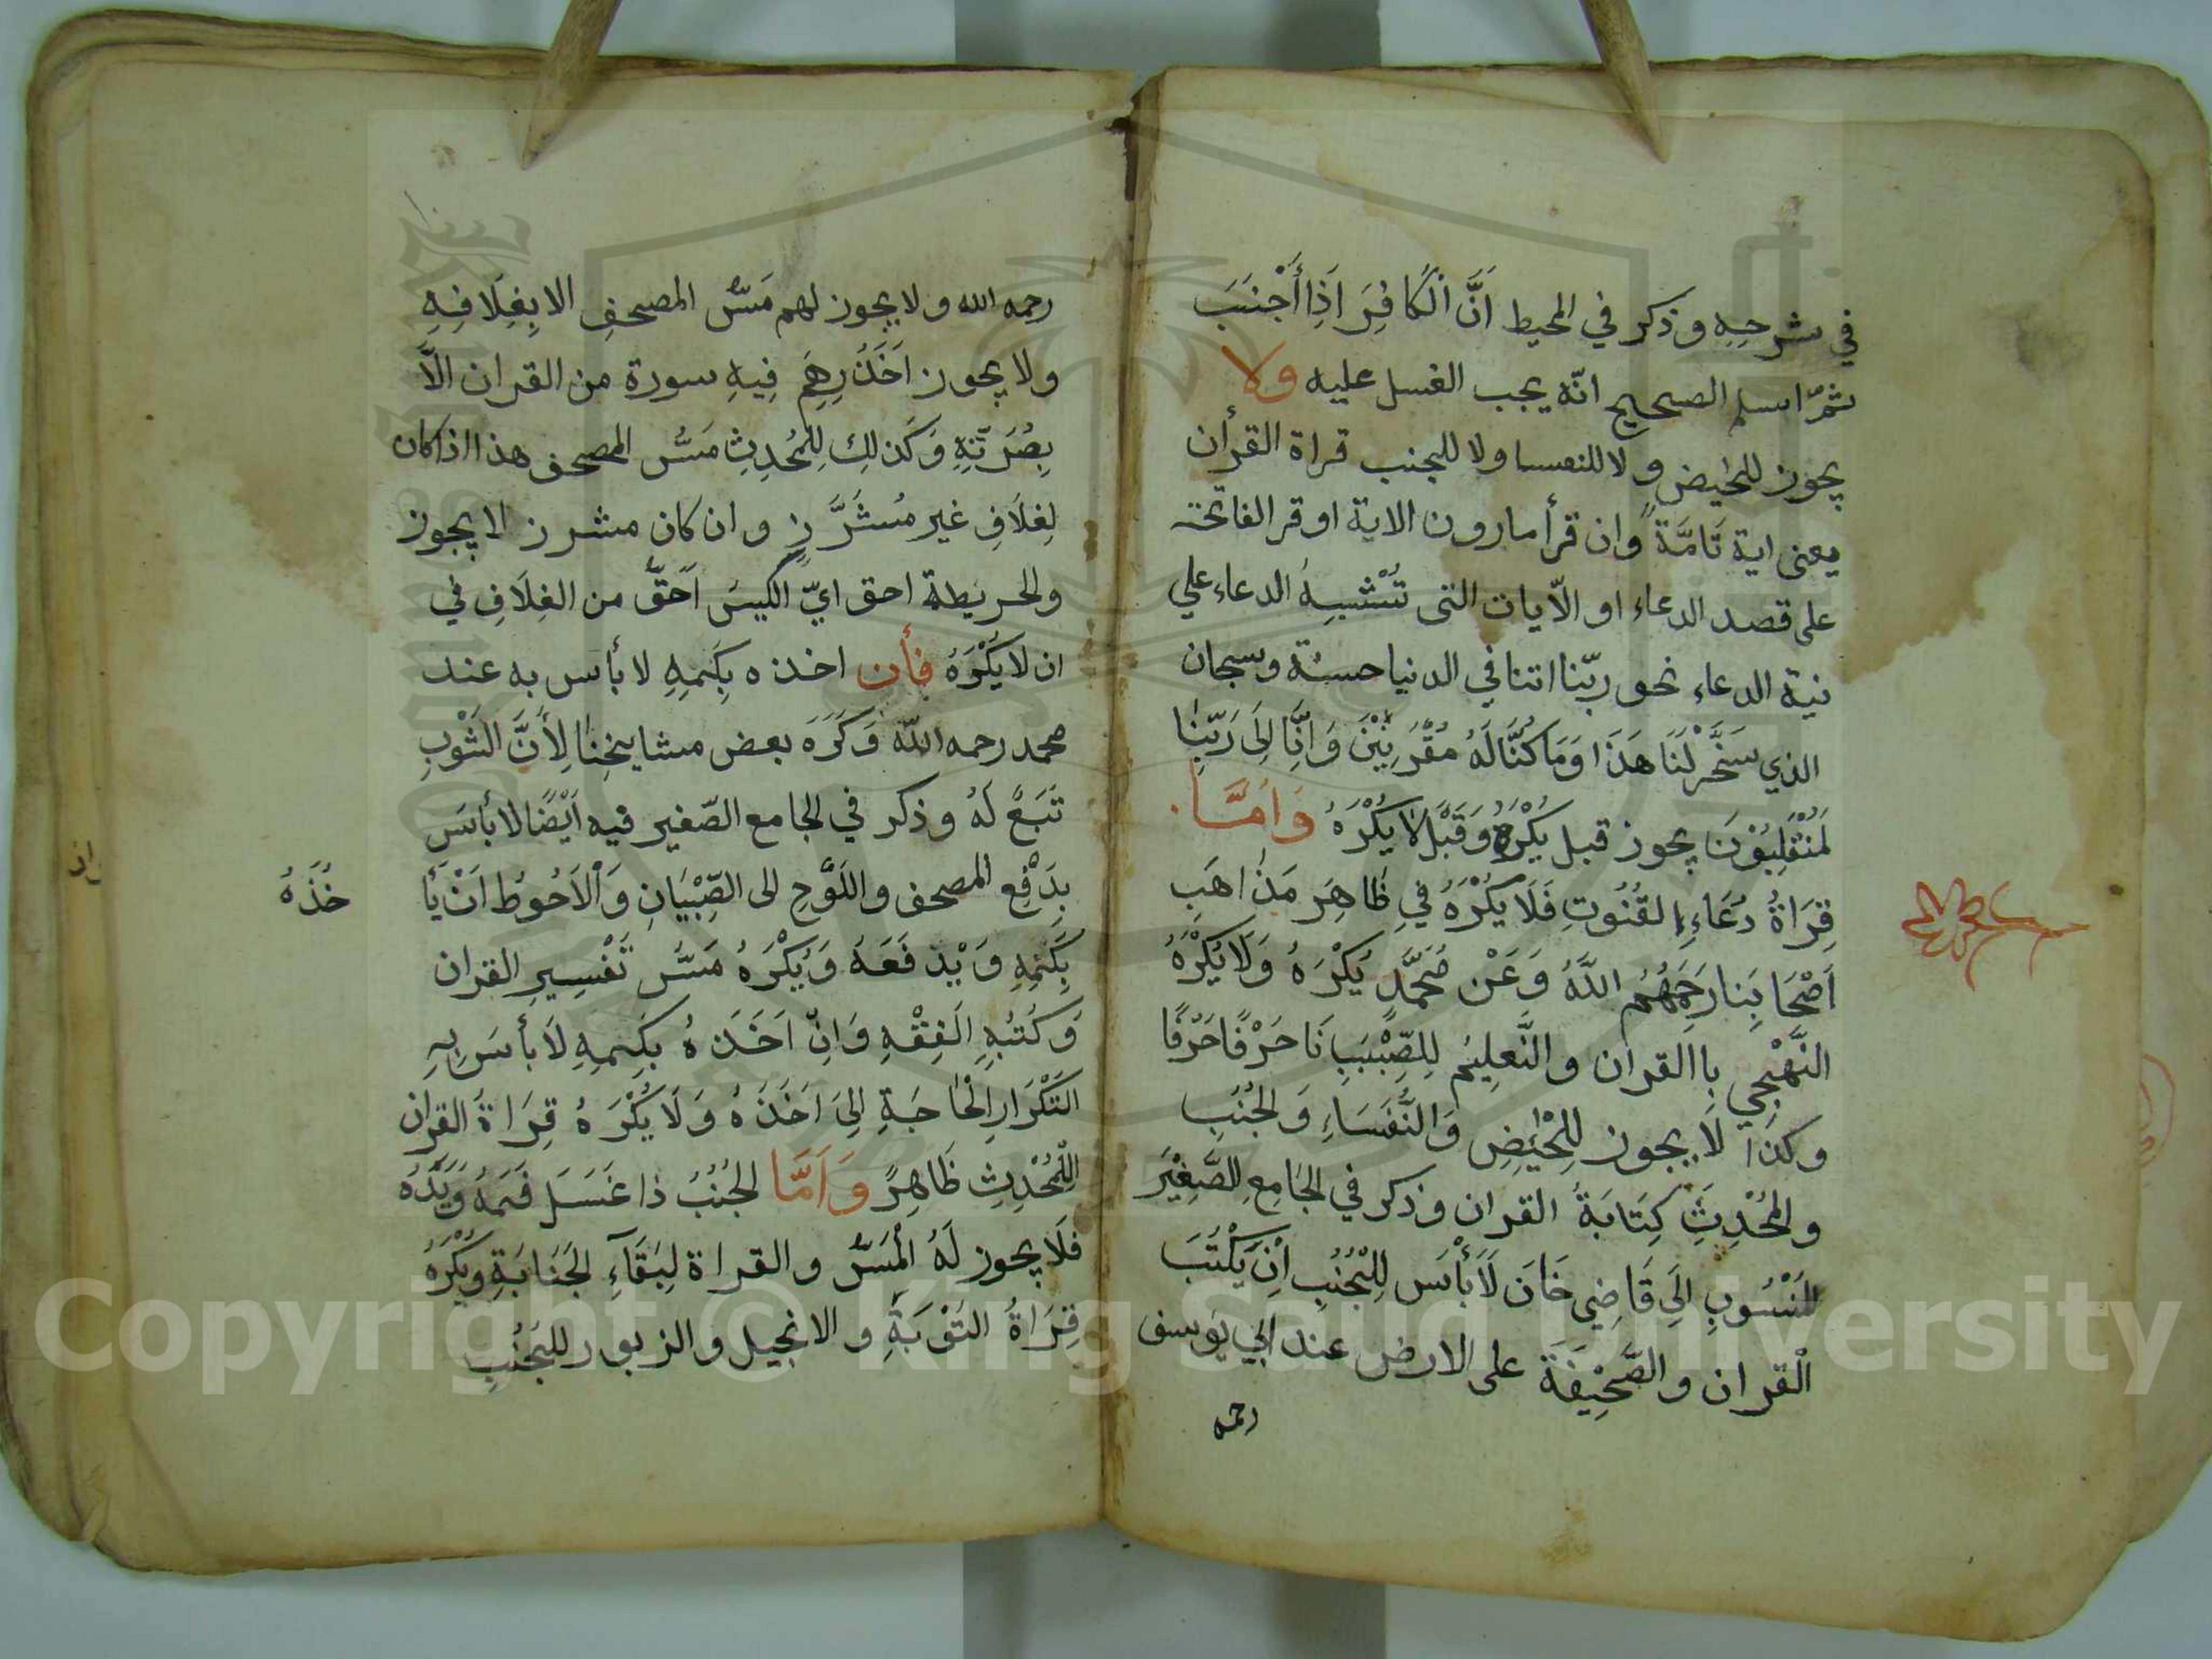 في شرحِهِ وذكر في المحيط اَنَّ الْكَافِرَ اَذِا أَجْنَبَ
ثمّ اسلم الصحيح انّه يجب الغسل عليه ولا
يجوز للحايض ولا للنفسا ولا للجنب قراة القرأن
يعنى اية تَامَّةً وان قرأ مارون الاية او قر الفاتحة
على قصد الدعاء او الآيات التى تُشْبِهُ الدعاء علي
نية الدعاء نحو ربّنا اتنا في الدنيا حسنة وسبحان
الذي سَخَّرْلَنَا هَذَا وَمَا كُنَّا لَهُ مُقْرِنِيْنَ وَانَّا لِلَى رَبِّنَا
لَمُنْقَلِبُوْنَ يجوز قبل يُكْرَهُ وَقَبْلَ لَا يُكْرَهُ وَامَّا
قِرَاةُ دُعَاءِ القُنُوتِ فَلَا يُكْرَهُ فِي ظَاهِرَ مَذَاهَبِ
اَصْحَابِنَا رَحِمَهُمُ اللَّهُ وَعَنْ مُحَمَّدٍ يَكْرَهُ وَلَا يُكْرَهُ
التَّهْجِي بِاالقران والتَّعلِيُم لِلصِّبْيَبِانَا حَرْفًا حَرْفًا
وكذا لَا يجوز لِلْحَائِضِ وَالنُّفَسَاءِ وَلجُنُبِ
والمُحْدِثِ كِتَابَةُ القران وذكر في الجَامِعِ الصَّغِيْرَ
المَنْسُوبِ اِلَي قَاضِي خَانَ لَا بَأْسَ لِلْجُنُبِ اَنْ يَكْتُبَ
الْقران والصَّحِيْفَةَ على الارض عند ابي يوسف
رحمه
رحمه الله ولا يجوز لهم مَسُّ المصحفِ الا بِغِلَافِهِ
ولا يجوز اَخَذَ رِهَمِ فِيهِ سورة من القران الاَّ
بِصُرَّتِهِ وَكَذلِك لِلْمُحْدِثِ مَسُّ المصحف هذا اذا كان
لِغلَافِ غير مُشَرَّزٍ وان كان مشرز لا يجوز
ولخريطة احق ايّ الكيسَ اَحَقُّ من الغِلَافِ في
ان لَا يَكْرَهُ فأن اخذه بِكَمِهِ لا بأس به عند
محمد رحمه اللّه وَكَرَهَ بعض مشايخِنَا لِأَنَّ الثَوْبِ
تَبَعً لَهُ وذكر في لجامع الصّغير فيه اَيْضًا لا بأسَ
بِدَفْعِ المصحف واللَوْحِ الى الصِّبْيَانِ وَالْاَحُوطُ اَنْ يَأْ
خُذَهُ
بِكَمِهِ وَيْدفَعَهُ وَيُكْرَهُ مَسُّ تَفْسِيرِ القران
وَكُتُبِهِ الَفِقْهِ وَاِنّ اَخَذَهُ بِكِمِهِ لَا بأسَ بِهِ
التَكْرَارِ الْحَاجَةِ اِلَى اَخَذَهُ وَلَا يُكْرَهُ قِرَاةَ القران
لِلْمُحْدِثِ ظَاهِرً وَاَمَّا لجُنُبُ ذا غَسَلَ فَمَهُ وَيَدَهُ
فَلَا يجوز لَهُ الْمَسُّ والقراة لِبَقَآءِ لجَنَابَةِ وَيُكْرَهُ
قِرَاةُ التَوْرَيةِ والانجيل والزبور للجُنُبِ
ان
Copyright © King Saud University